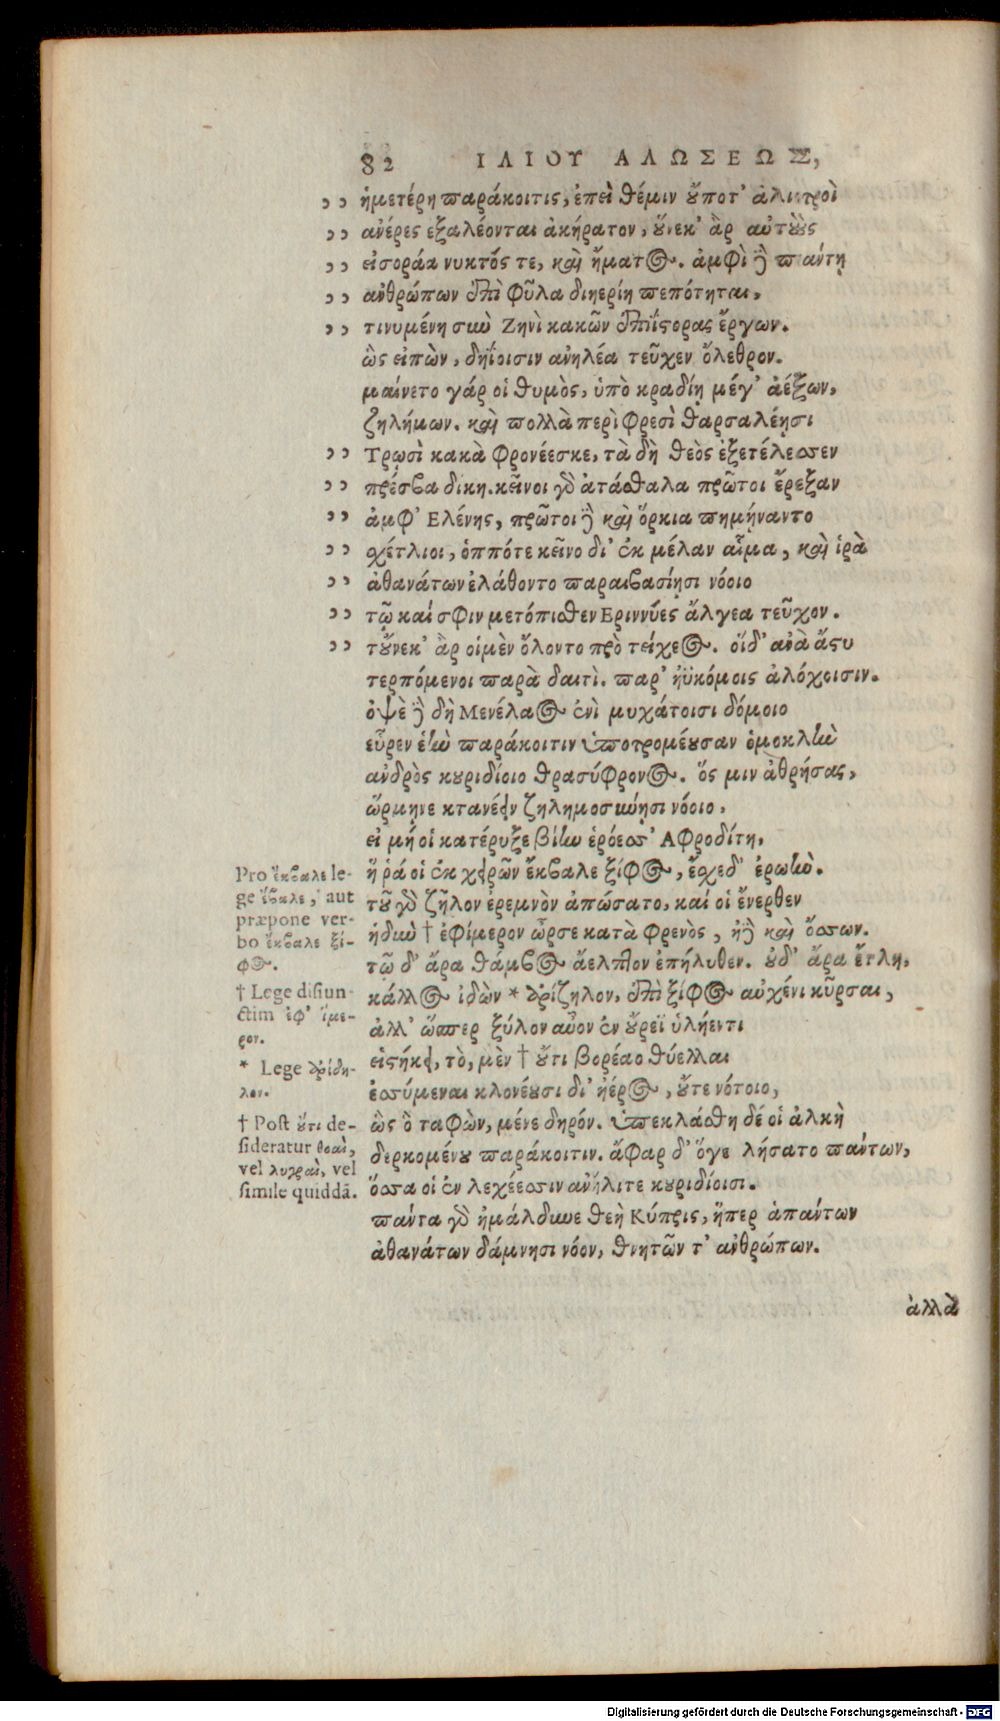 82 ΙΛΙΟΥ ΑΛΩΣΕΩΣ,
,, ἡμετέρη παράκοιτις, ἐπεὶ θέμιν οὔποτ' ἀλιτροὶ
,, ἀνέρες ἐξαλέονται ἀκήρατον, οὕνεκ' ἂρ αὐτοὺς
,, εἰσοράα νυκτός τε, καὶ ἤματος. ἀμφὶ δὲ πάντῃ
,, ἀνθρώπων ἐπὶ φῦλα διηερίη πεπότηται,
,, τινυμένη σὺν Ζηνὶ κακῶν ἐπιΐστορας ἔργων.
ὣς εἰπὼν, δηΐοισιν ἀνηλέα τεῦχεν ὄλεθρον.
μαίνετο γάρ οἱ θυμὸς, ὑπὸ κραδίῃ μέγ' ἀέξων,
ζηλήμων. καὶ πολλὰ περὶ φρεσὶ θαρσαλέῃσι
,, Τρωσὶ κακὰ φρονέεσκε, τὰ δὴ θεὸς ἐξετέλεσσεν
,, πρέσβα δίκη. κεῖνοι γὰρ ἀτάσθαλα πρῶτοι ἔρεξαν
,, ἀμφ' Ελένης, πρῶτοι δὲ καὶ ὅρκια πημήναντο
,, σχέτλιοι, ὁππότε κεῖνο δι' ἐκ μέλαν αἷμα, καὶ ἱρὰ
,, ἀθανάτων ἐλάθοντο παραιβασίῃσι νόοιο
,, τῷ καί σφιν μετόπισθεν Εριννύες ἄλγεα τεῦχον.
,, τοὔνεκ' ἂρ οἱ μὲν ὄλοντο πρὸ τείχεος. οἵδ' ἀνὰ ἄστυ
τερπόμενοι παρὰ δαιτὶ. παρ' ἠϋκόμοις ἀλόχοισιν.
ὀψὲ δὲ δὴ Μενέλαος ἐνὶ μυχάτοισι δόμοιο
εὗρεν ἑὴν παράκοιτιν ὑποτρομέουσαν ὁμοκλὴν
ἀνδρὸς κουριδίοιο θρασύφρονος. ὅς μιν ἀθρήσας,
ὥρμηνε κτανέειν ζηλημοσύνῃσι νόοιο,
εἰ μή οἱ κατέρυξε βίην ἐρόεσσ' Αφροδίτη,
ἥ ῥά οἱ ἐκ χειρῶν ἔκβαλε ξίφος, ἔσχεδ' ἐρωὴν.
τοῦ γὰρ ζῆλον ἐρεμνὸν ἀπώσατο, καί οἱ ἔνερθεν
ἡδὺν † ἐφίμερον ὦρσε κατὰ φρενὸς, ἠδὲ καὶ ὄσσων.
τῷ δ' ἄρα θάμβος ἄελπτον ἐπήλυθεν. οὐδ' ἄρα ἔτλη,
κάλλος ἰδὼν * ἀρίζηλον, ἐπὶ ξίφος αὐχένι κῦρσαι,
ἀλλ' ὥσπερ ξύλον αὖον ἐν οὔρεϊ ὑλήεντι
εἱστήκει, τὸ, μὲν † οὔτι βορέαο θύελλαι
ἐσσύμεναι κλονέουσι δι' ἠέρος, οὔτε νότοιο,
ὣς ὃ ταφὼν, μένε δηρόν. ὑπεκλάσθη δέ οἱ ἀλκὴ
δερκομένου παράκοιτιν. ἄφαρ δ' ὅγε λήσατο πάντων,
ὅσσα οἱ ἐν λεχέεσσιν ἀνήλιτε κουριδίοισι.
πάντα γὰρ ἠμάλδυνε θεὴ Κύπρις, ἥπερ ἁπάντων
ἀθανάτων δάμνησι νόον, θνητῶν τ' ἀνθρώπων.
ἀλλὰ
Pro ἔκβαλε le-
ge ἔβαλε, aut
præpone ver-
bo ἔκβαλε ξί-
φος.
† Lege disiun-
ctim ἐφ' ἵμε-
ρον.
* Lege ἀρίδη-
λον.
† Post οὔτι de-
sideratur θοαὶ,
vel λυγραὶ, vel
simile quiddã.
Digitalisierung gefördert durch die Deutsche Forschungsgemeinschaft - DFG